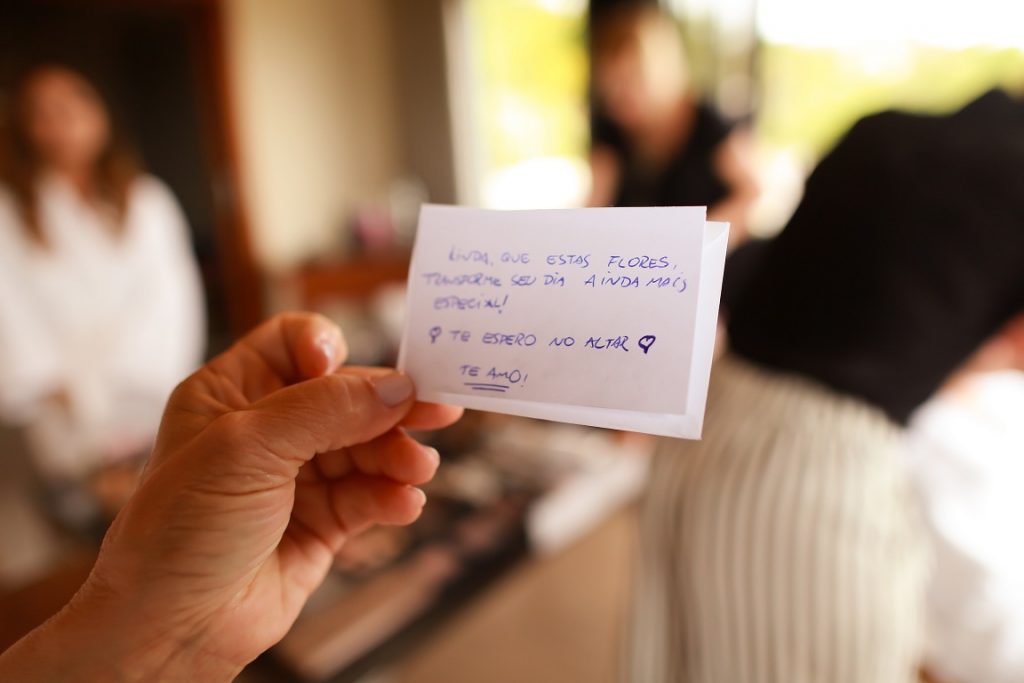 LINDA, QUE ESTAS FLORES,
TRANSFORME SEU DIA AINDA MAIS
ESPECIAL!
♡ TE ESPERO NO ALTAR ♡
TE AMO!